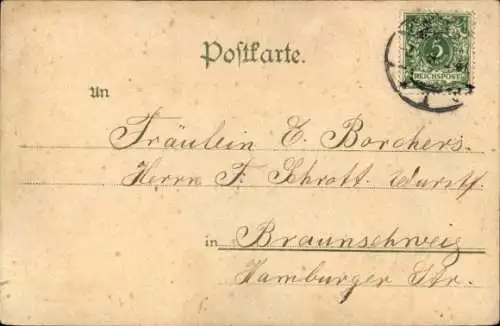 Postkarte.
5
REICHSPOST
An
Fräulein E. Borchers.
Herrn F. Schrott. Wurstf.
in Braunschweig
Hamburger Str.